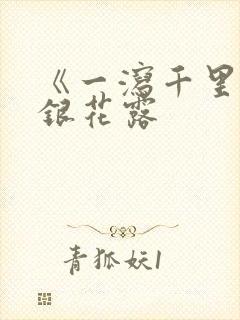 《一瀉千里
銀花露
青狐妖1